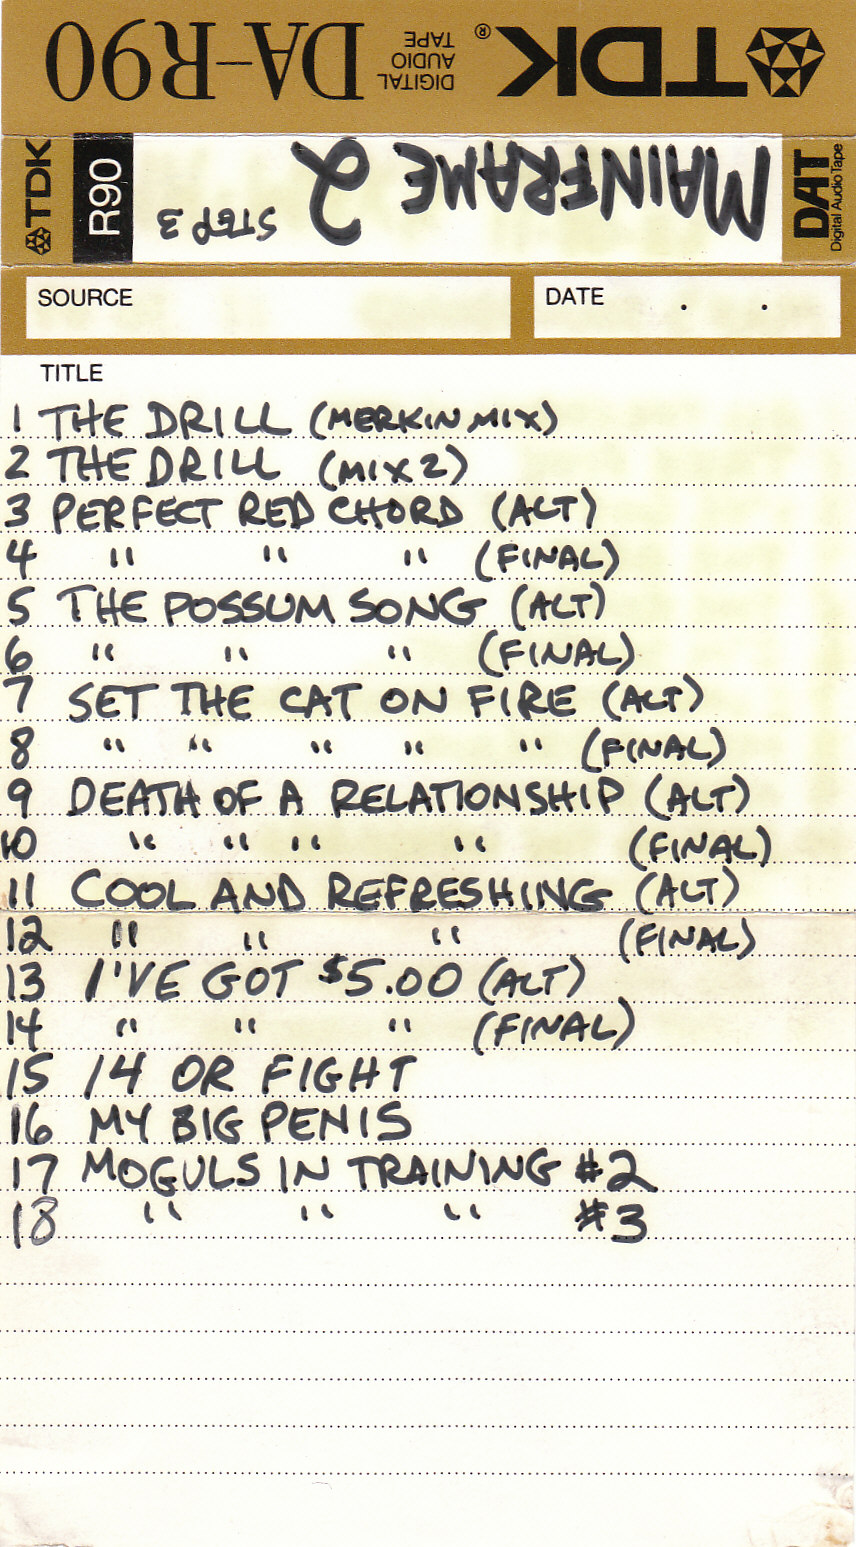 TDK®
DIGITAL AUDIO TAPE
DA-R90
TDK
R90
MAINFRAME 2
STEP 3
DAT
Digital Audio Tape
SOURCE
DATE . .
TITLE
1 THE DRILL (MERKIN MIX)
2 THE DRILL (MIX 2)
3 PERFECT RED CHORD (ALT)
4 " " " (FINAL)
5 THE POSSUM SONG (ALT)
6 " " " (FINAL)
7 SET THE CAT ON FIRE (ALT)
8 " " " " " (FINAL)
9 DEATH OF A RELATIONSHIP (ALT)
10 " " " " (FINAL)
11 COOL AND REFRESHING (ALT)
12 " " " (FINAL)
13 I'VE GOT $5.00 (ALT)
14 " " " (FINAL)
15 14 OR FIGHT
16 MY BIG PENIS
17 MOGULS IN TRAINING #2
18 " " " #3